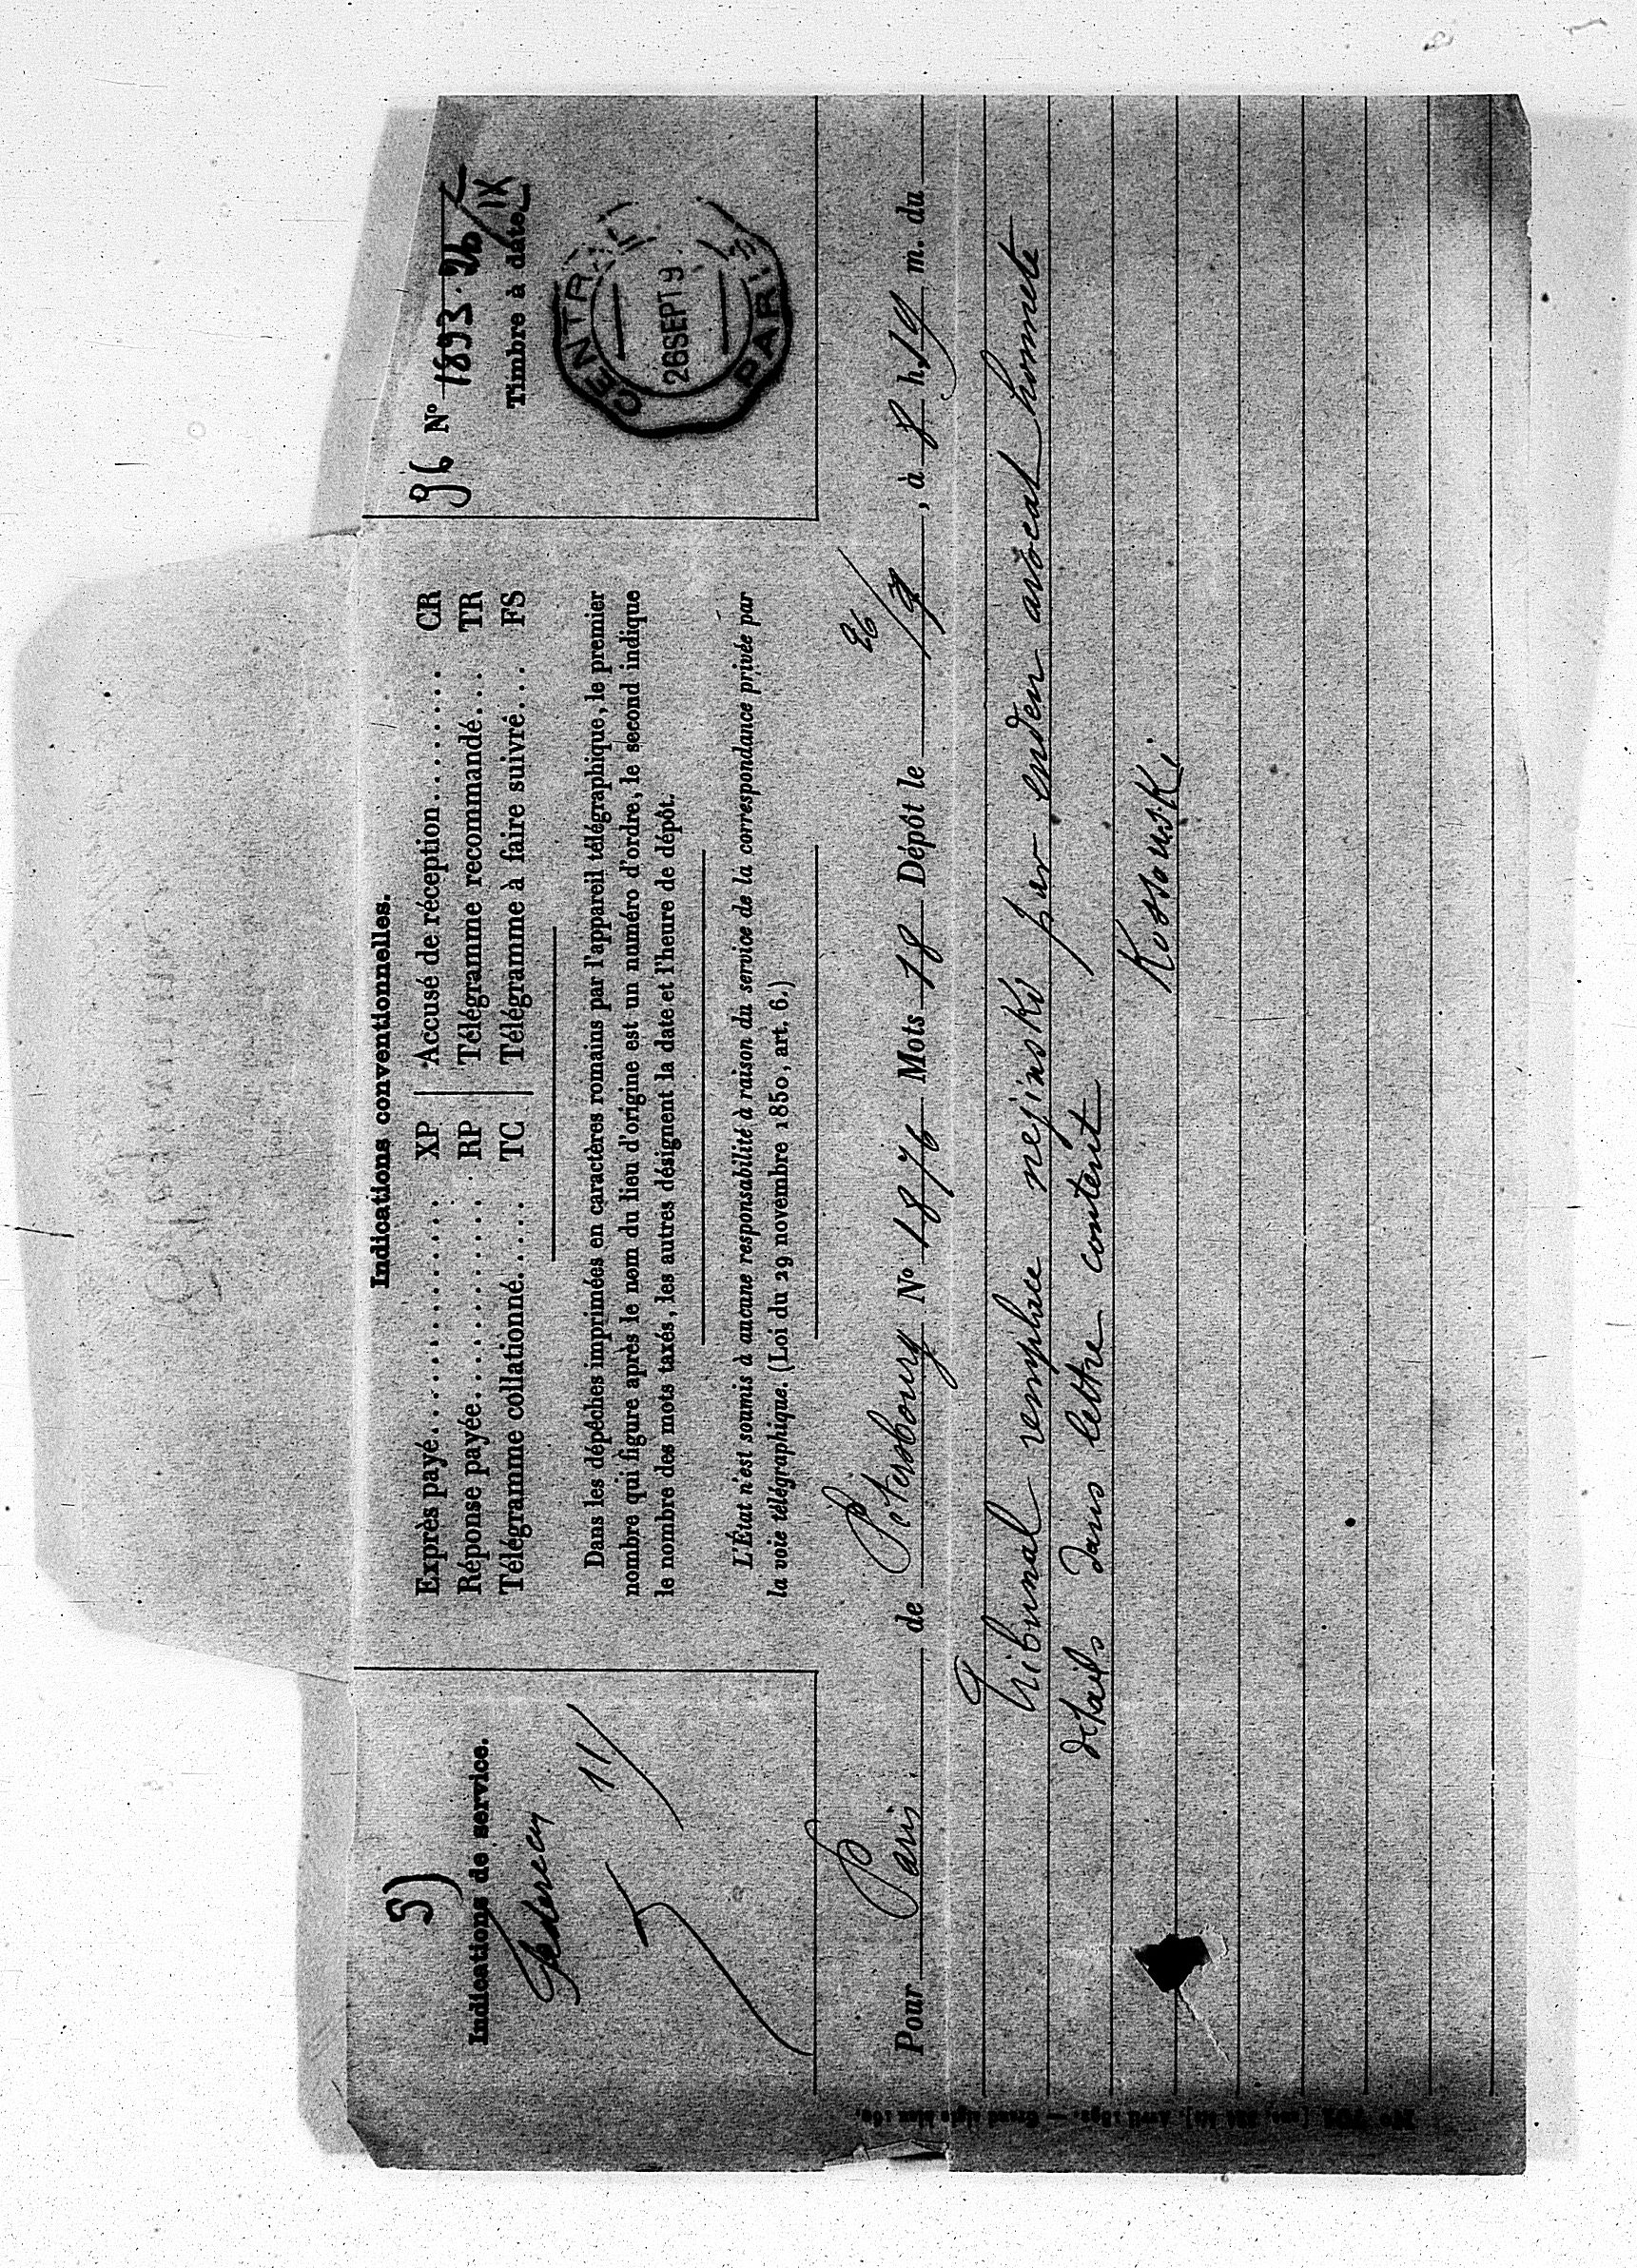 96 N° 1893 26/IX
5)
Indications de service.
11/
Indications conventionnelles.
Exprès payé................ XP | Accusé de réception......... CR
Réponse payée............. RP | Télégramme recommandé.... TR
Télégramme collationné...... TC | Télégramme à faire suivre... FS
Dans les dépêches imprimées en caractères romains par l'appareil télégraphique, le premier
nombre qui figure après le nom du lieu d'origine est un numéro d'ordre, le second indique
le nombre des mots taxés, les autres désignent la date et l'heure de dépôt.
L'État n'est soumis à aucune responsabilité à raison du service de la correspondance privée par
la voie télégraphique. (Loi du 29 novembre 1850, art. 6.)
Timbre à date.
CENTR
26 SEPT 9
PARIS
Pour Paris de Petersbourg N° 1876 Mots 18 Dépôt le 26/9, à 8 h. 19 m. du
Tribunal remplace nejinski par enden avocat honnete
details dans lettre contentKossouski